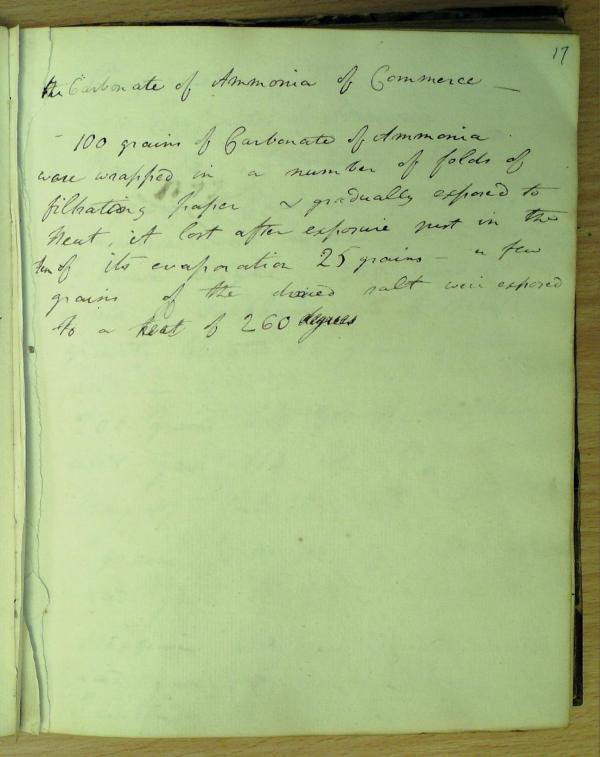 17
the Carbonate of Ammonia of Commerce —
— 100 grains of Carbonate of Ammonia
were wrapped in a number of folds of
filtrating paper & gradually exposed to
Heat, it lost after exposure just in the
of its evaporation 25 grains — a few
grains of the dried salt were exposed
to a heat of 260 degrees